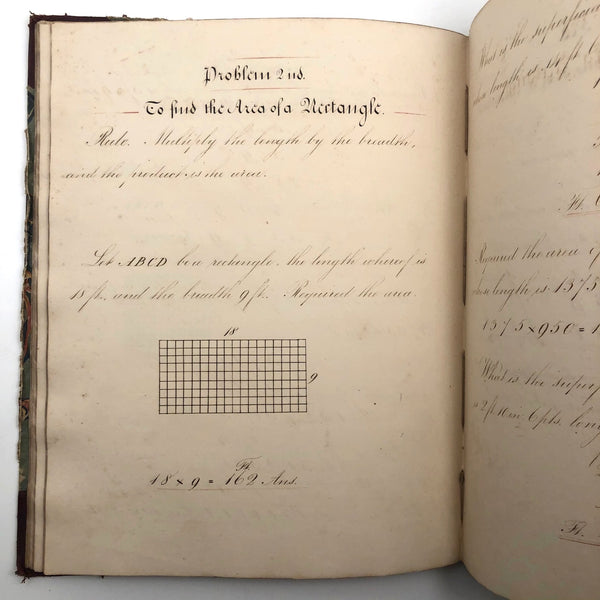 Problem 2nd.
To find the Area of a Rectangle.
Rule. Multiply the length by the breadth,
and the product is the area.
Let ABCD be a rectangle, the length whereof is
18 ft. and the breadth 9 ft. Required the area
18
9
Ft.
18 × 9 = 162 Ans.
What is the superficia
length is 14 ft
Ft.
Required the area of
whose length is 1375
1375 × 950 = 1
What is the superf
is 2 ft 10 in 6 pts. long
Ft.